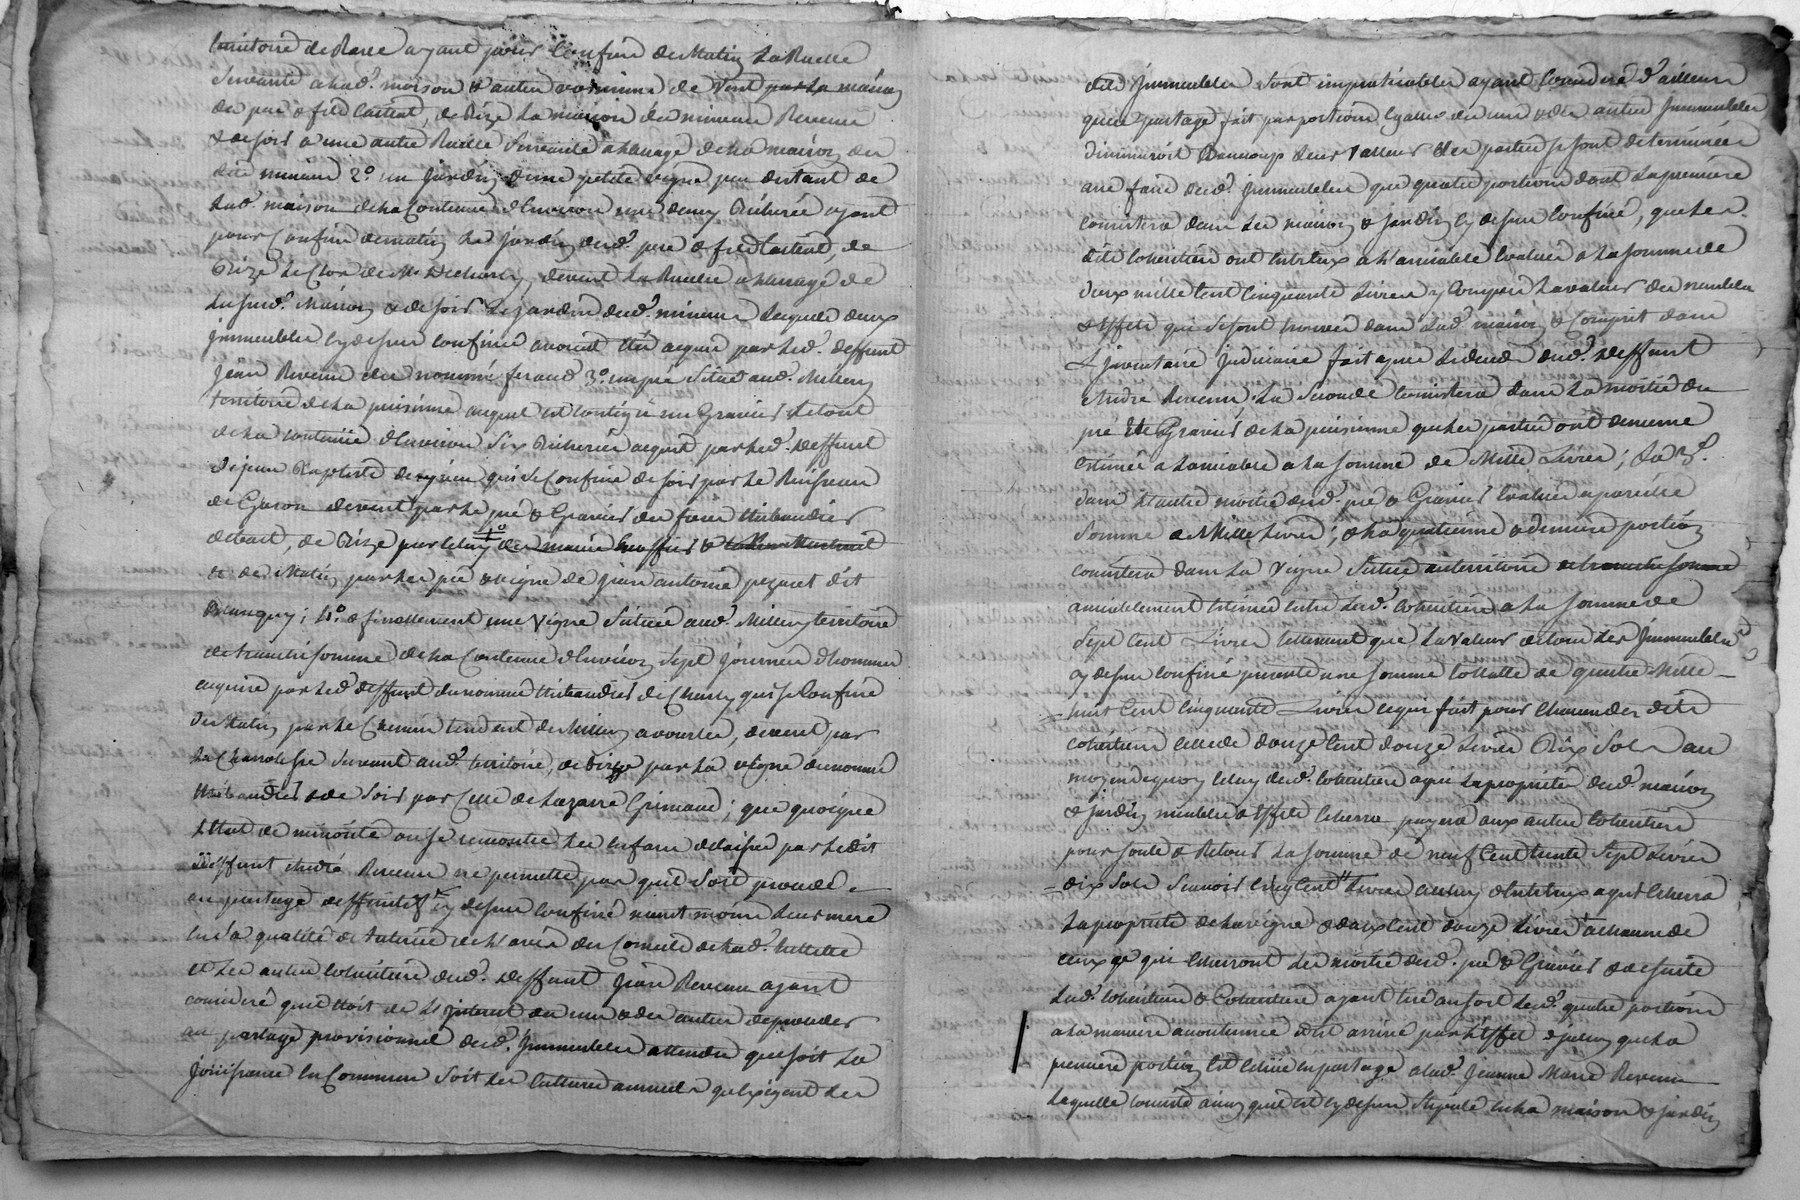 territoire de Ravee ayant pour Confins de Matin La Ruelle
Servante a lad.e maison & autres voisinnes de Vent par la maison
des pere & fils Castent, de Bize La maison des mineurs Reveux
& de soir a une autre Ruelle Servante a l'usage de la maison des
dits mineurs 2.o un Jardin & une petite vigne peu distant de
lad.e maison de la Contenue d'Environ une demy Bicherée ayant
pour Confins de matin Le Jardin desd.s pere & fils Castent, de
Bize Le Clos de Mr, de vent La Ruelle a l'usage de
La susd.e Maison & de soir Le Jardin desd.s mineurs Lesquels deux
immeubles cy dessus confinés avoient été acquis par led.t deffunt
Jean Reveux du nommé feraud 3.o un pré Situé aud.t Millery
territoire de la puisinne auquel est contigu un Gravier Le tout
de la contenüe d'Environ Six Bicherées acquis par led.t deffunt
de jean Baptiste qui se Confine de soir par Le Ruisseau
de Garon de vent par le pré & Graviers des freres thibaudier
de bize par celuy des mariés &
& de Matin par les pré & vigne de jean antoine pezaret dit
; 4.o & finallement une Vigne Située aud.t Millery territoire
de de la Contenue d'Environ Sept Journées d'hommes
acquise par led.t deffunt du nommé thibaudier de Charly qui se Confine
de Matin par le Chemin tendant de Millery a vourles, de vent par
La Charriere Servant aud.t territoire, de bize par la vigne du nommé
thibaudier & de Soir par Celle de Lazare Grimaud; que quoique
L'Etat de minorité ou se rencontre Les Enfans delaissés par Ledit
deffunt André Reveux ne permette pas qu'il Soit procédé
au partage deffinitif cy dessus Confiné neant moins Leur mere
En Sa qualité de tutrice & de l'avis du Conseil de lad.e tutelle
et Les autres Cohéritiers dud.t deffunt Jean Reveux ayant
consideré qu'il étoit de L'Interet des uns & des autres de proceder
au partage provisionnel desd.s Immeubles attendu que soit La
Jouissance En Commun Soit Les Cultures annuels qu'Exigent Les
dits Immeubles Sont impraticables ayant Consideré d'ailleurs
qu'un partage fait par portions Egalles des uns & des autres Immeubles
diminueroit Beaucoup de Leurs Valleurs Les parties se sont determinées
a ne faire desd.s Immeubles que quatre portions dont La premiere
Consistera dans Les maison & jardin cy dessus Confiné, que Les
dits Cohéritiers ont Entr'Eux a L'amiable Evalué a La somme de
deux mille Cent Cinquante Livres y Compris La valeur des meubles
& Effets qui Se Sont trouvés dans Lad.e maison & Compris dans
L'Inventaire Judiciaire fait apres Le deces dud.t deffunt
André Reveux La Seconde Consistera dans La moitié du
pré & Gravier de la puisinne que Les parties ont de meme
Estimée a L'amiable a La Somme de Mille Livres; La 3.e
dans L'autre moitié dud.t pré & Gravier Evalué a pareille
Somme de Mille Livres; & La quatrieme & derniere portion
Consistera dans La Vigne Située au territoire de
amiablement Estimée Entre Lesd.s Cohéritiers a La Somme de
Sept Cent Livres tellement que La valeur de tous Les Immeubles
cy dessus Confiné presente une Somme tottalle de quatre Mille
huit Cent Cinquante Livres ce qui fait pour Chacun des dits
Cohéritiers Celle de douze Cent douze Livres Dix Sols au
moyen de quoy Celuy desd.s Cohéritiers a qui La proprieté desd.s maison
& Jardin meubles & Effets Echerra payera aux autres Cohéritiers
pour Soute & Retour La Somme de neuf Cent trente Sept Livres
dix Sols Scavoir Cinq Cent Livres a Celuy d'Entr'Eux a qui Echerra
La proprieté de La vigne & deux Cent douze Livres a Chacun de
ceux qui Echerront Les moitié dud.t pré & Gravier & de suite
Lesd.s Cohéritiers & Cohéritiere ayant tiré au Sort Lesd.s quatre portions
a La maniere accoutumée il est arrivé par L'Effet d'Icelui que La
premiere portion Est Echüe en partage a Lad.e Jeanne Marie Reveux
Laquelle Consiste ainsy qu'il est cy dessus Stipulé En La maison & jardin